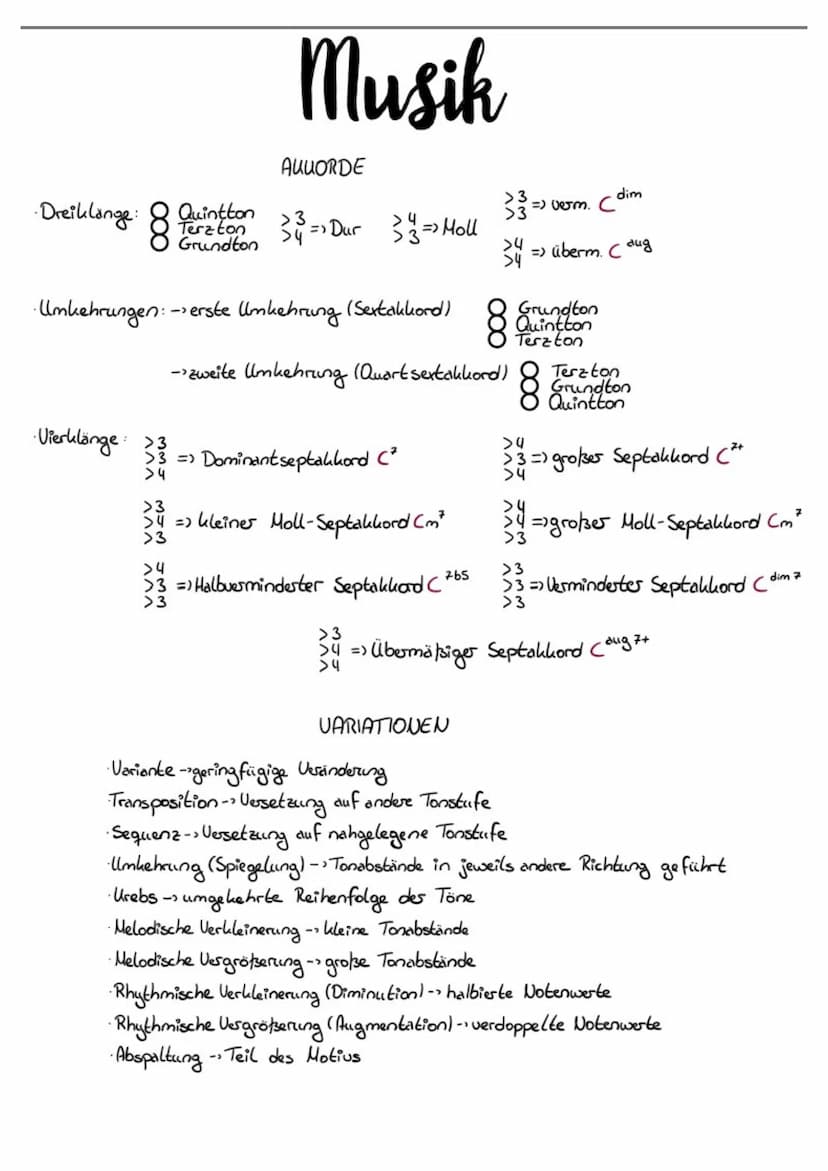 Musik
AKKORDE
·Dreiklänge: Quintton >3 => Dur >4 => Moll >3 => verm. C dim
Terzton >4 >3 >3
Grundton >4 => überm. C aug
>4
·Umkehrungen: -> erste Umkehrung (Sextakkord) Grundton
Quintton
Terzton
-> zweite Umkehrung (Quartsextakkord) Terzton
Grundton
Quintton
·Vierklänge: >3 >4
>3 => Dominantseptakkord C7 >3 => großer Septakkord C7+
>4 >4
>3 >4
>4 => kleiner Moll-Septakkord Cm7 >4 => großer Moll-Septakkord Cm7
>3 >3
>4 >3
>3 => Halbverminderter Septakkord C7b5 >3 => Verminderter Septakkord C dim7
>3 >3
>3
>4 => Übermäßiger Septakkord C aug7+
>4
VARIATIONEN
·Variante -> geringfügige Veränderung
·Transposition -> Versetzung auf andere Tonstufe
·Sequenz -> Versetzung auf nahgelegene Tonstufe
·Umkehrung (Spiegelung) -> Tonabstände in jeweils andere Richtung geführt
·Krebs -> umgekehrte Reihenfolge der Töne
·Melodische Verkleinerung -> kleine Tonabstände
·Melodische Vergrößerung -> große Tonabstände
·Rhythmische Verkleinerung (Diminution) -> halbierte Notenwerte
·Rhythmische Vergrößerung (Augmentation) -> verdoppelte Notenwerte
·Abspaltung -> Teil des Motivs